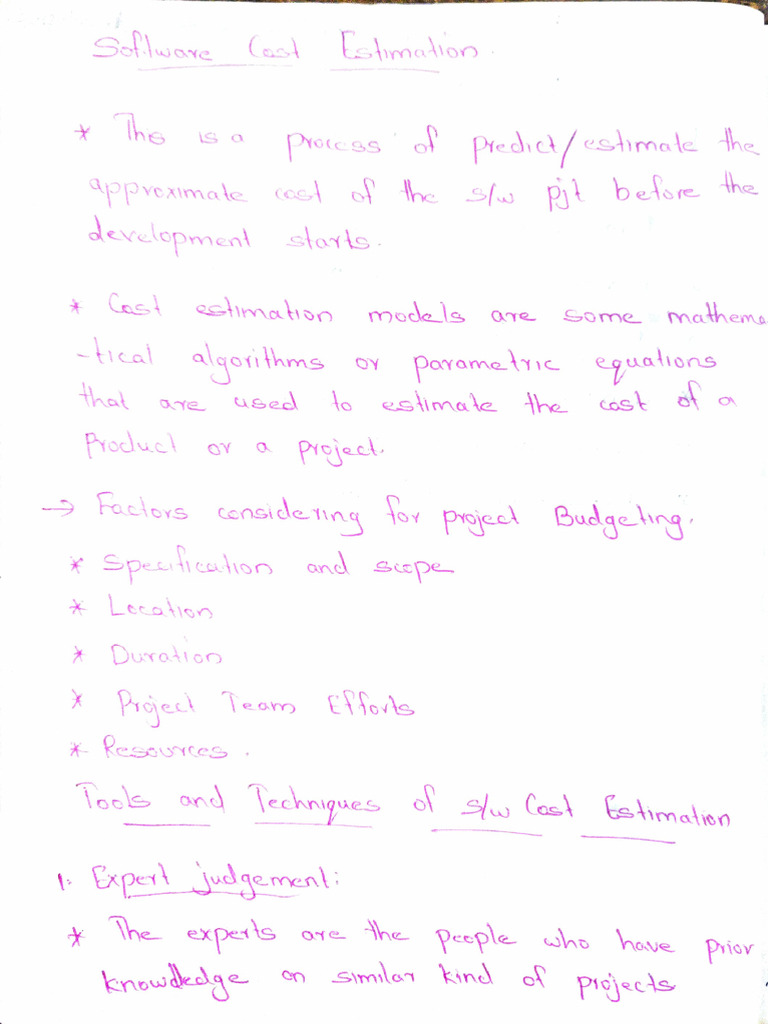 Software Cost Estimation.
* This is a process of predict/estimate the
approximate cost of the s/w pjt before the
development starts.
* Cost estimation models are some mathema
-tical algorithms or parametric equations
that are used to estimate the cost of a
Product or a project.
→ Factors considering for project Budgeting.
* Specification and scope
* Location
* Duration
* Project Team Efforts
* Resources.
Tools and Techniques of s/w Cost Estimation
1. Expert judgement:
* The experts are the people who have prior
knowledge on similar kind of projects